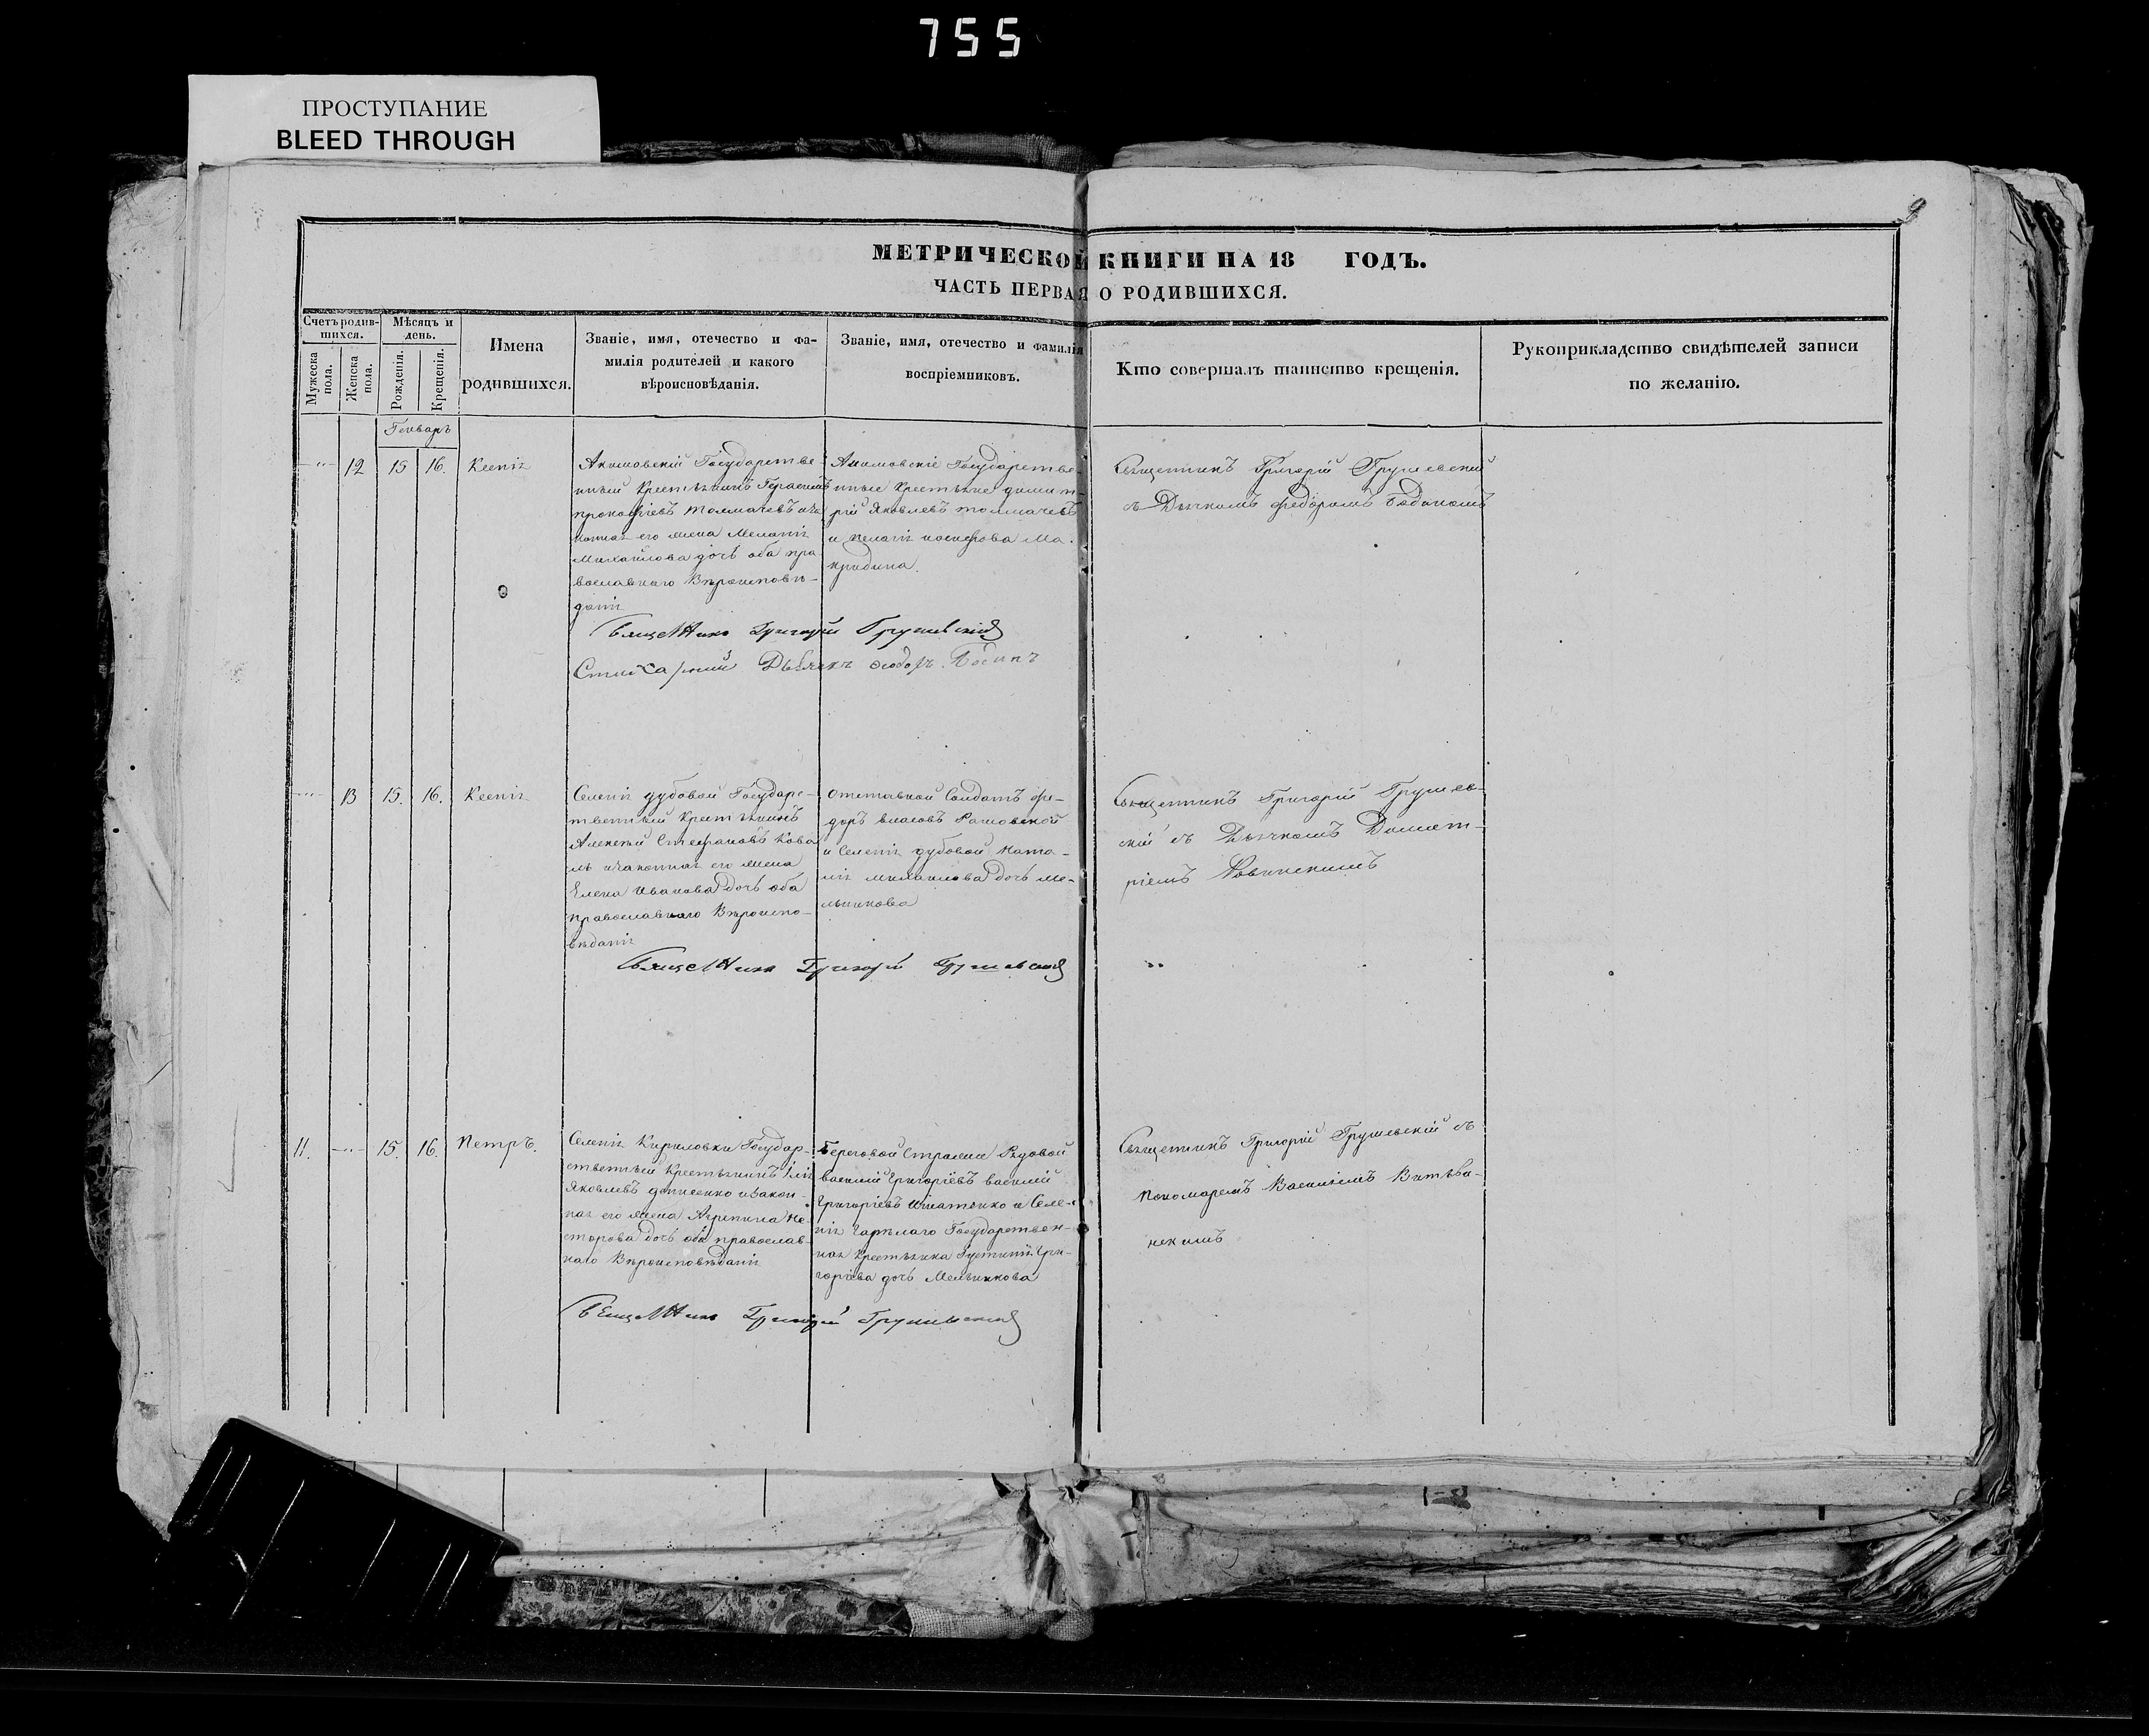 755
ПРОСТУПАНИЕ
BLEED THROUGH
9
МЕТРИЧЕСКОЙ КНИГИ НА 18 ГОДЪ.
ЧАСТЬ ПЕРВАЯ О РОДИВШИХСЯ.
Счетъ родив-
шихся.
Мужеска пола.
Женска пола.
Мѣсяцъ и
день.
Рожденія.
Крещенія.
Имена
родившихся.
Званіе, имя, отечество и фа-
милія родителей и какого
вѣроисповѣданія.
Званіе, имя, отечество и фамилія
воспріемниковъ.
Кто совершалъ таинство крещенія.
Рукоприкладство свидѣтелей записи
по желанію.
Генварь
12
15
16.
Ксенія
Акимовскій Государстве-
нный Крестьянинъ Герасимъ
прокофіевъ толмачевъ и за
конная его жена Меланія
Михайлова дочь оба пра
вославнаго Вѣроисповѣ-
данія
Акимовскіе Государстве-
нные Крестьяне димит-
рій Яковлевъ толмачевъ
и пелагія
Священникъ Григорій Грушевскій
съ Дьячкомъ Федоромъ
Священникъ Григорій Грушевскій
Стихарный Дьячекъ
13
15.
16.
Ксенія
Селенія дубовой Государс-
твенный Крестьянинъ
Алексѣй Стефановъ Кова
ль и законная его жена
Елена Иванова дочь оба
православнаго Вѣроиспо-
вѣданія
отставной Солдатъ фе-
доръ власовъ
и Селенія дубовой ната-
лія михаилова дочь ме-
льникова
Священникъ Григорій Грушев-
скій съ Дьячкомъ Димит-
ріемъ
Священникъ Григорій Грушевскій
11.
15.
16.
Петръ.
Селенія Кириловки Государ-
ственный Крестьянинъ Илія
Яковлевъ денисенко и закон-
ная его жена Агрепина Не-
сторова дочь оба православ-
наго Вѣроисповѣданія
Береговой Стражи Рядовой
василій Григоріевъ василій
Григоріевъ Игнатенко и Селе-
нія Государствен-
ная Крестьянка Гри-
горіева дочь Мельникова
Священникъ Григорій Грушевскій съ
пономаремъ Василіемъ
Священникъ Григорій Грушевскій